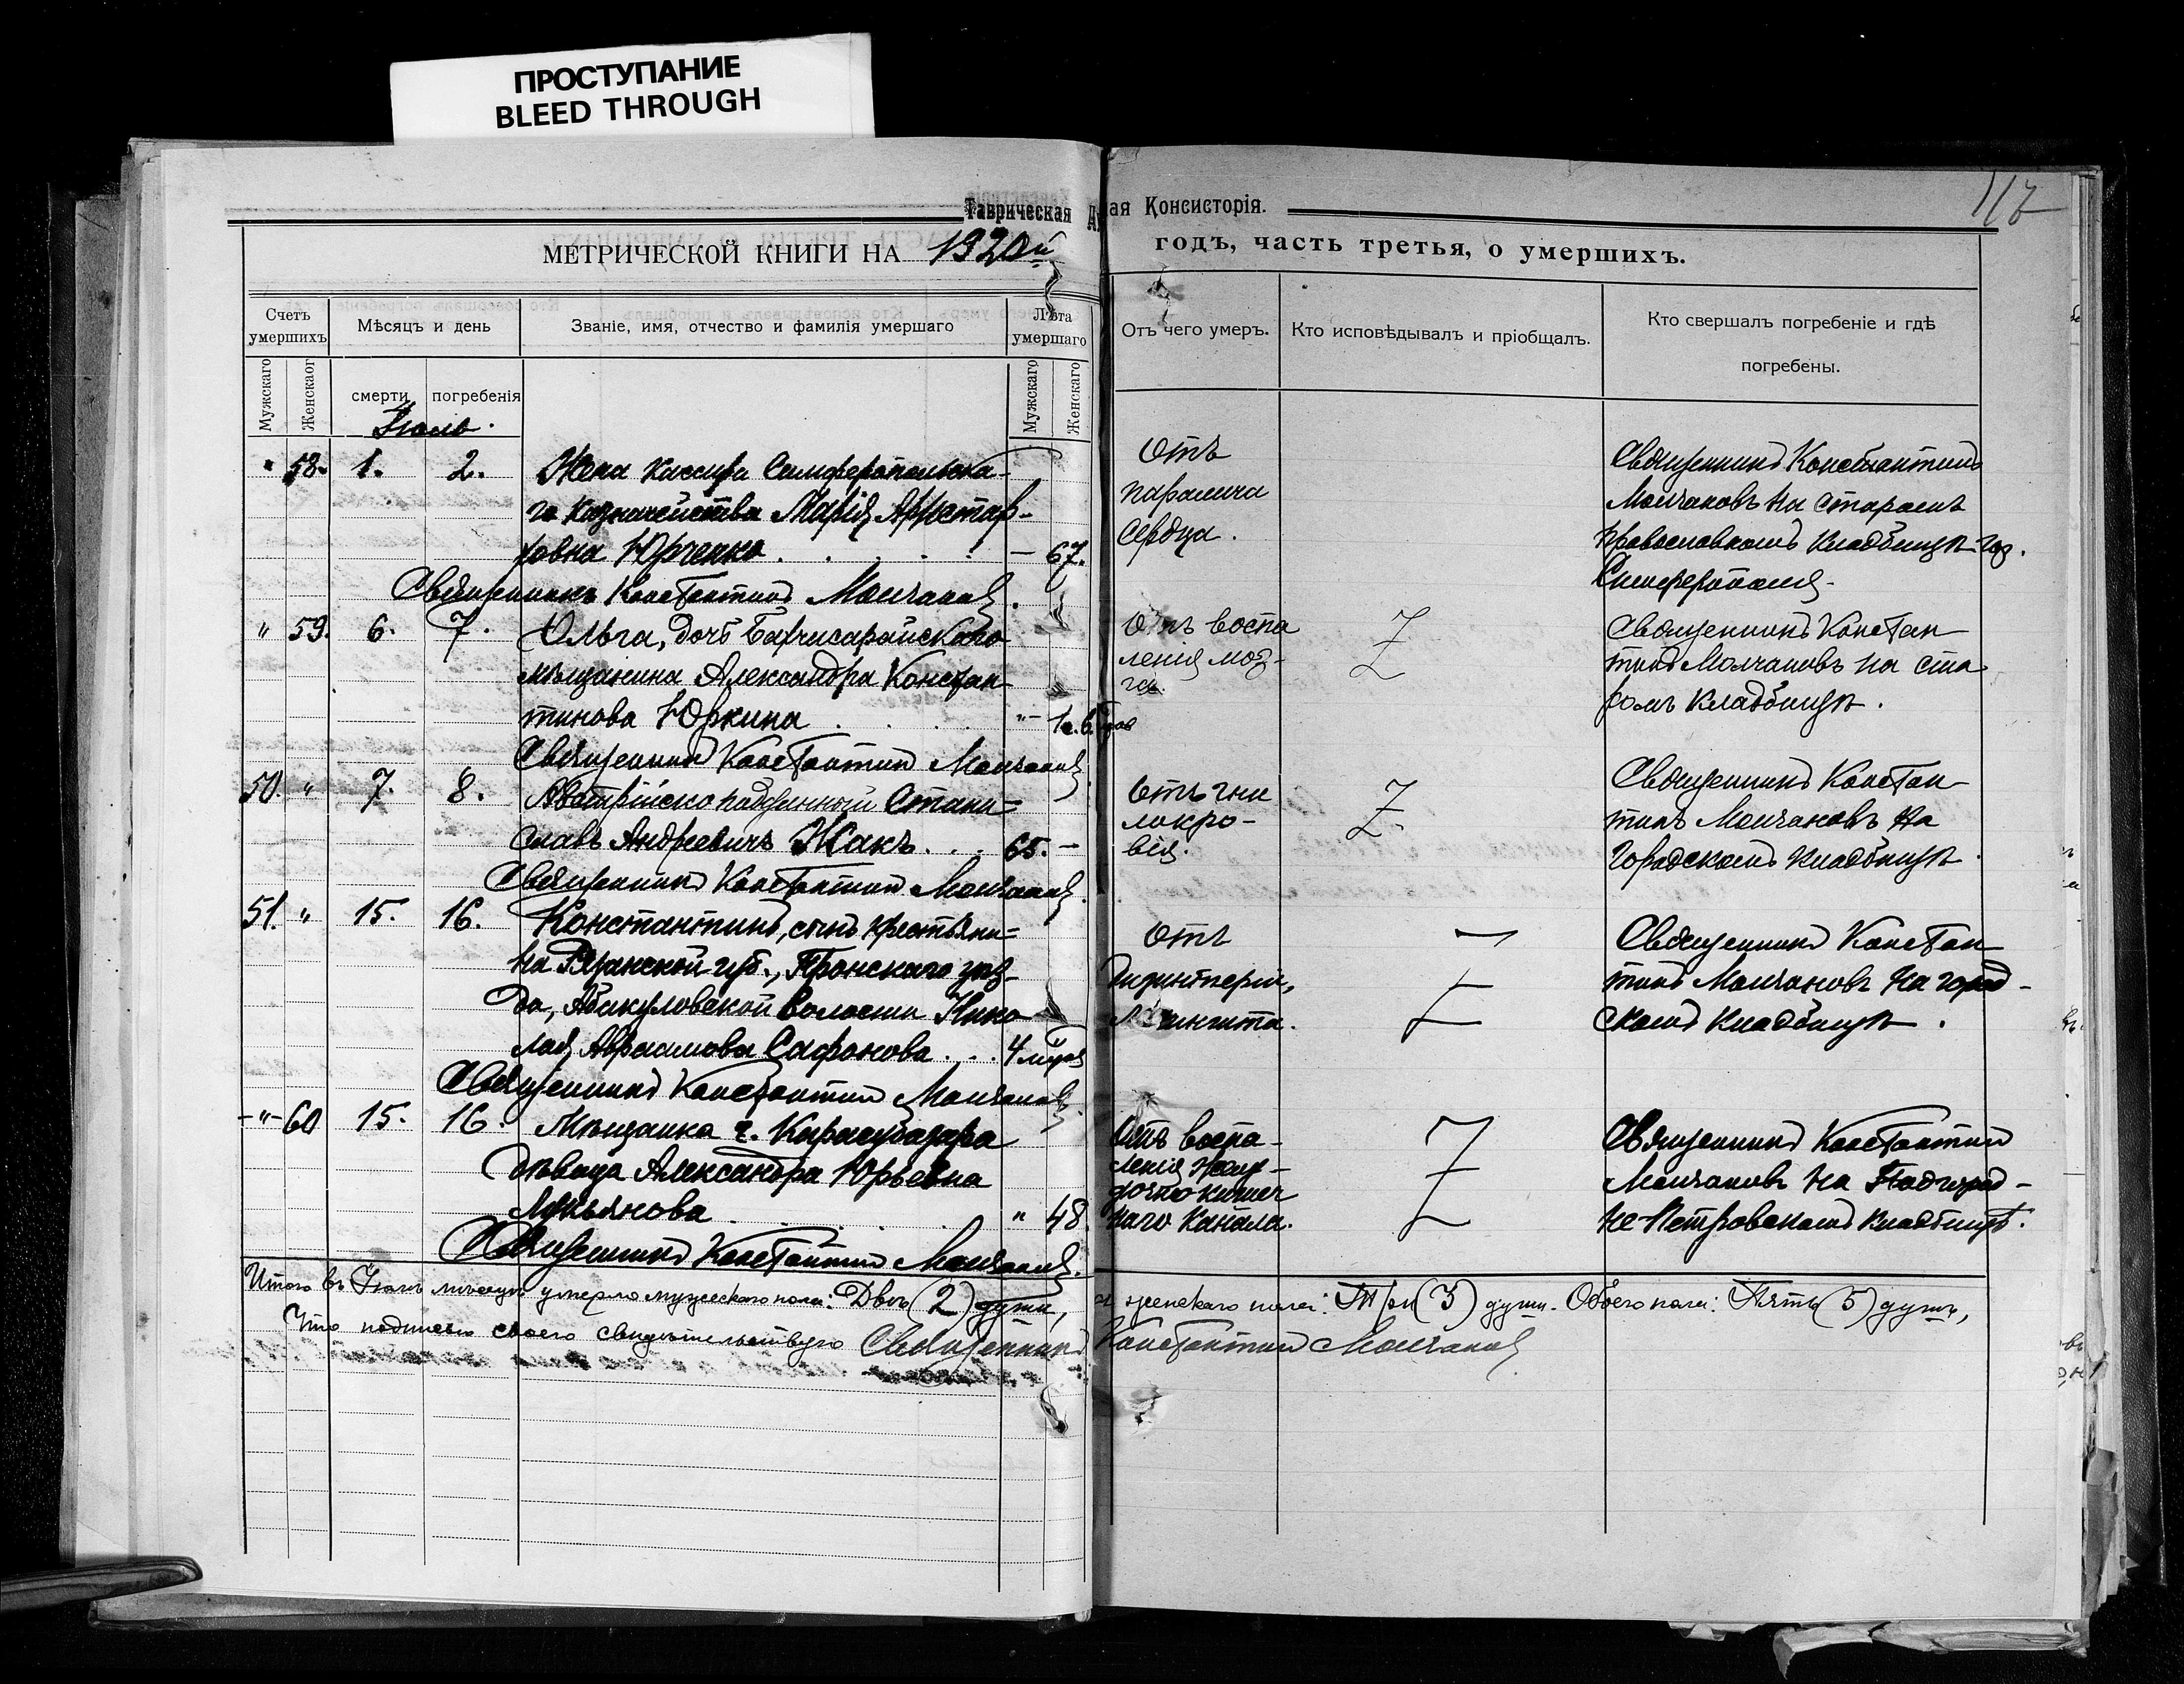 ПРОСТУПАНИЕ
BLEED THROUGH
117
Таврическая ая Консисторія.
МЕТРИЧЕСКОЙ КНИГИ НА 1920й годъ, часть третья, о умершихъ.
Счетъ умершихъ
Мѣсяцъ и день
Званіе, имя, отчество и фамилія умершаго
Лѣта умершаго
Отъ чего умеръ.
Кто исповѣдывалъ и пріобщалъ.
Кто свершалъ погребеніе и гдѣ
погребены.
Мужскаго
Женскаог
смерти
погребенія
Мужскаго
Женскаго
Іюль.
" 58. 1. 2.
Жена кассира Симферопольска-
го казначейства Марія Аристар-
ховна Юрченко . . . . .
— 67.
Священникъ Константинъ Молчановъ.
Отъ
паралича
сердца.
Священникъ Константинъ
Молчановъ на старомъ
православномъ кладбищѣ гор.
Симферополя.
" 59. 6. 7.
Ольга, дочь Бахчисарайскаго
мѣщанина Александра Констан-
тинова Юркина . . . .
Священникъ Константинъ Молчановъ
Отъ воспа
ленія моз-
га.
Z
Священникъ Констан
тинъ Молчановъ на ста
ромъ кладбищѣ.
50. " 7. 8.
Австрійскоподданный Стани=
славъ Андреевичъ Жакъ . . .
65. —
Священникъ Константинъ Молчановъ.
Отъ гни
локро-
вія.
Z
Священникъ Констан
тинъ Молчановъ на
городскомъ кладбищѣ.
51. " 15. 16.
Константинъ, сынъ крестьяни=
на Рязанской губ., Пронскаго уѣз-
да, Абакуловской волости Нико
лая Авраамова Сафонова . . .
Священникъ Константинъ Молчановъ.
Отъ
Z
Священникъ Констан
тинъ Молчановъ на город-
скомъ кладбищѣ.
-"- 60 15. 16.
Мѣщанка г. Карасубазара
дѣвица Александра Юрьевна
Лукьянова . . . . .
" 48.
Священникъ Константинъ Молчановъ.
Отъ воспа-
ленія желу-
дочно кишеч
наго канала.
Z
Священникъ Константинъ
Молчановъ на Подгород-
не-Петровскомъ кладбищѣ.
Итого въ Іюлѣ мѣсяцѣ умерло мужескаго пола: Двѣ (2) души, а женскаго пола: Три (3) души. Обоего пола: Пять (5) душъ,
Что подписью своею свидѣтельствую Священникъ Константинъ Молчановъ